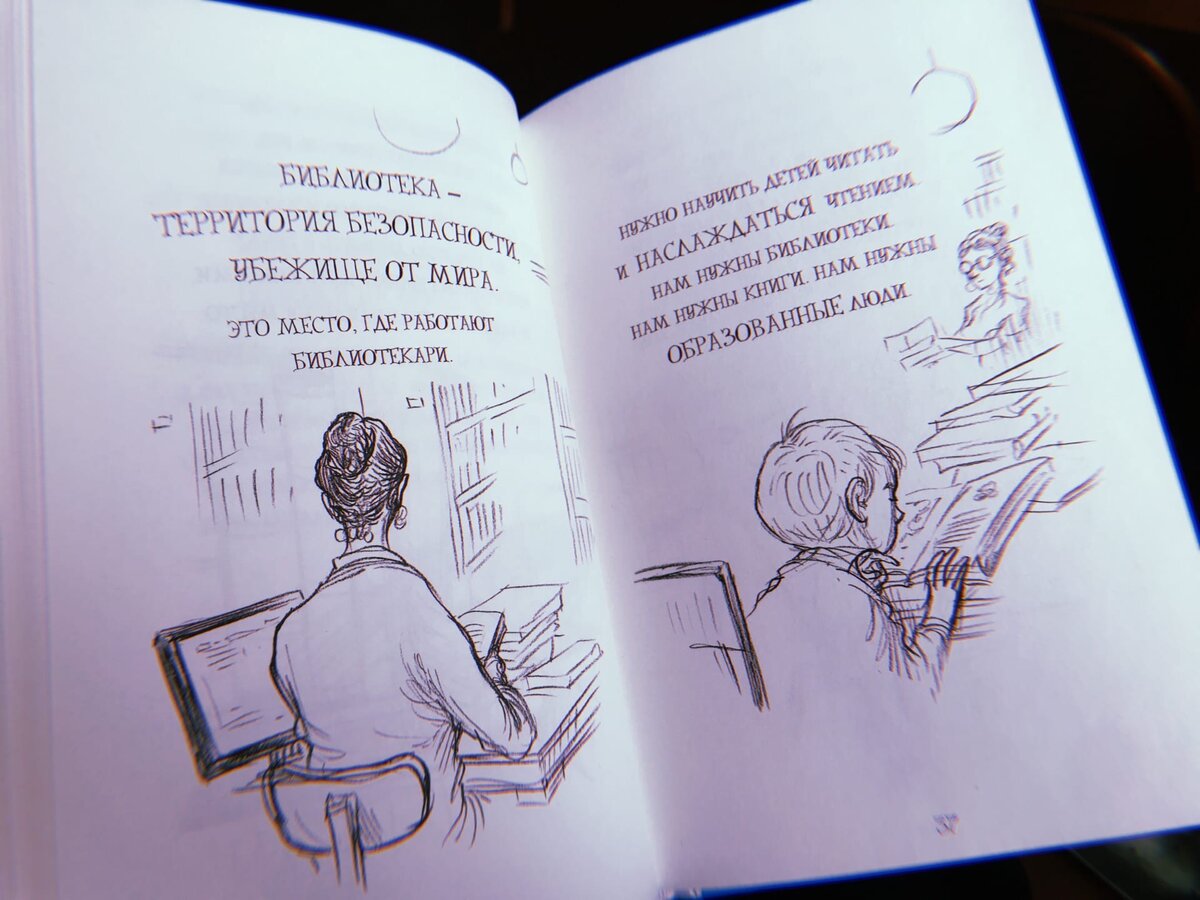 БИБЛИОТЕКА –
ТЕРРИТОРИЯ БЕЗОПАСНОСТИ,
УБЕЖИЩЕ ОТ МИРА.
ЭТО МЕСТО, ГДЕ РАБОТАЮТ
БИБЛИОТЕКАРИ.
НУЖНО НАУЧИТЬ ДЕТЕЙ ЧИТАТЬ
И НАСЛАЖДАТЬСЯ ЧТЕНИЕМ.
НАМ НУЖНЫ БИБЛИОТЕКИ.
НАМ НУЖНЫ КНИГИ. НАМ НУЖНЫ
ОБРАЗОВАННЫЕ ЛЮДИ.
37